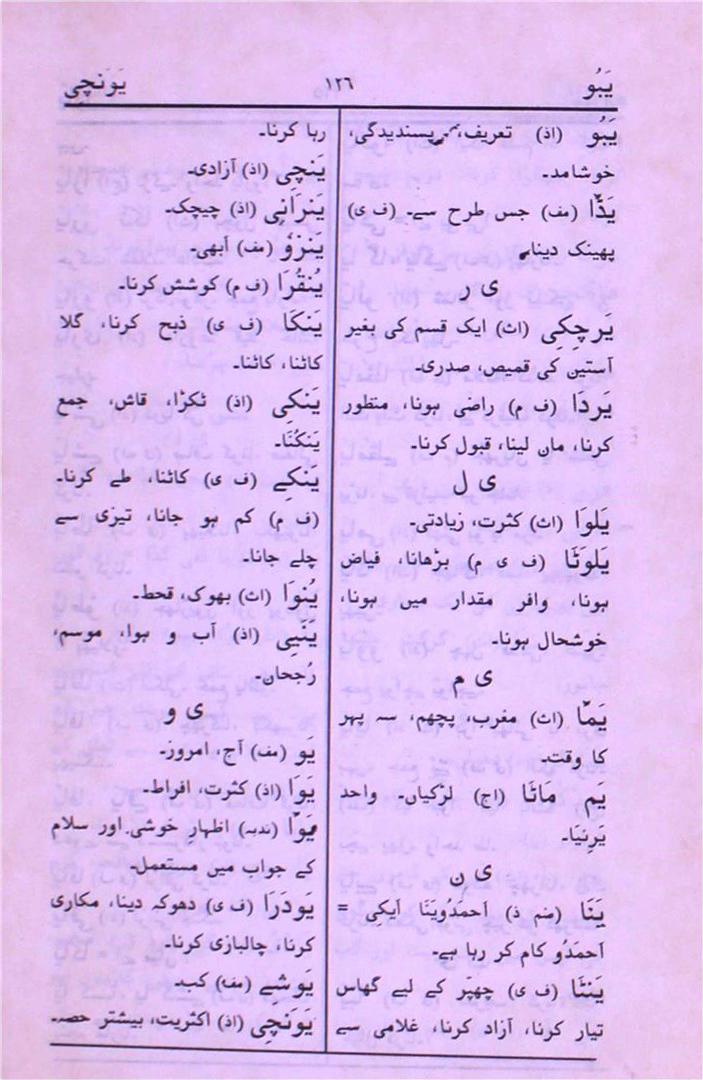 یَبُو
۱۲۶
یَونَچی
یَبُو (اذ) تعریف، پسندیدگی،
خوشامد۔
یَدّا (مف) جس طرح سے۔ (ف ی)
پھینک دینا۔
ی ر
یَرچِکی (اث) ایک قسم کی بغیر
آستین کی قمیص، صدری۔
یَردَا (ف م) راضی ہونا، منظور
کرنا، مان لینا، قبول کرنا۔
ی ل
یَلوَا (اث) کثرت، زیادتی۔
یَلوَتَا (ف ی م) بڑھانا، فیاض
ہونا، وافر مقدار میں ہونا،
خوشحال ہونا۔
ی م
یَمّا (اث) مغرب، پچھم، سہ پہر
کا وقت۔
یَم مَاتَا (اج) لڑکیاں۔ واحد
یَرنِیَا۔
ی ن
یَنَا (ضم ذ) اَحمَدُویَنَا اَیکی =
اَحمَدُو کام کر رہا ہے۔
یَنتَا (ف ی) چھپر کے لیے گھاس
تیار کرنا، آزاد کرنا، غلامی سے
رہا کرنا۔
یَنچِی (اذ) آزادی۔
یَنرَانِی (اذ) چیچک۔
یَنزَو (مف) ابھی۔
یُنقُرَا (ف م) کوشش کرنا۔
یَنکَا (ف ی) ذبح کرنا، گلا
کاٹنا، کاٹنا۔
یَنکِی (اذ) ٹکڑا، قاش، جمع
یَنکُنَا۔
یَنکے (ف ی) کاٹنا، طے کرنا۔
(ف م) کم ہو جانا، تیزی سے
چلے جانا۔
یُنوَا (اث) بھوک، قحط۔
یَنَیِی (اذ) آب و ہوا، موسم،
رُجحان۔
ی و
یَو (مف) آج، امروز۔
یَوَا (اذ) کثرت، افراط۔
یَوّا (ندبہ) اظہار خوشی اور سلام
کے جواب میں مستعمل۔
یَودَرَا (ف ی) دھوکہ دینا، مکاری
کرنا، چالبازی کرنا۔
یَوشے (مف) کب۔
یَونَچِی (اذ) اکثریت، بیشتر حصہ۔